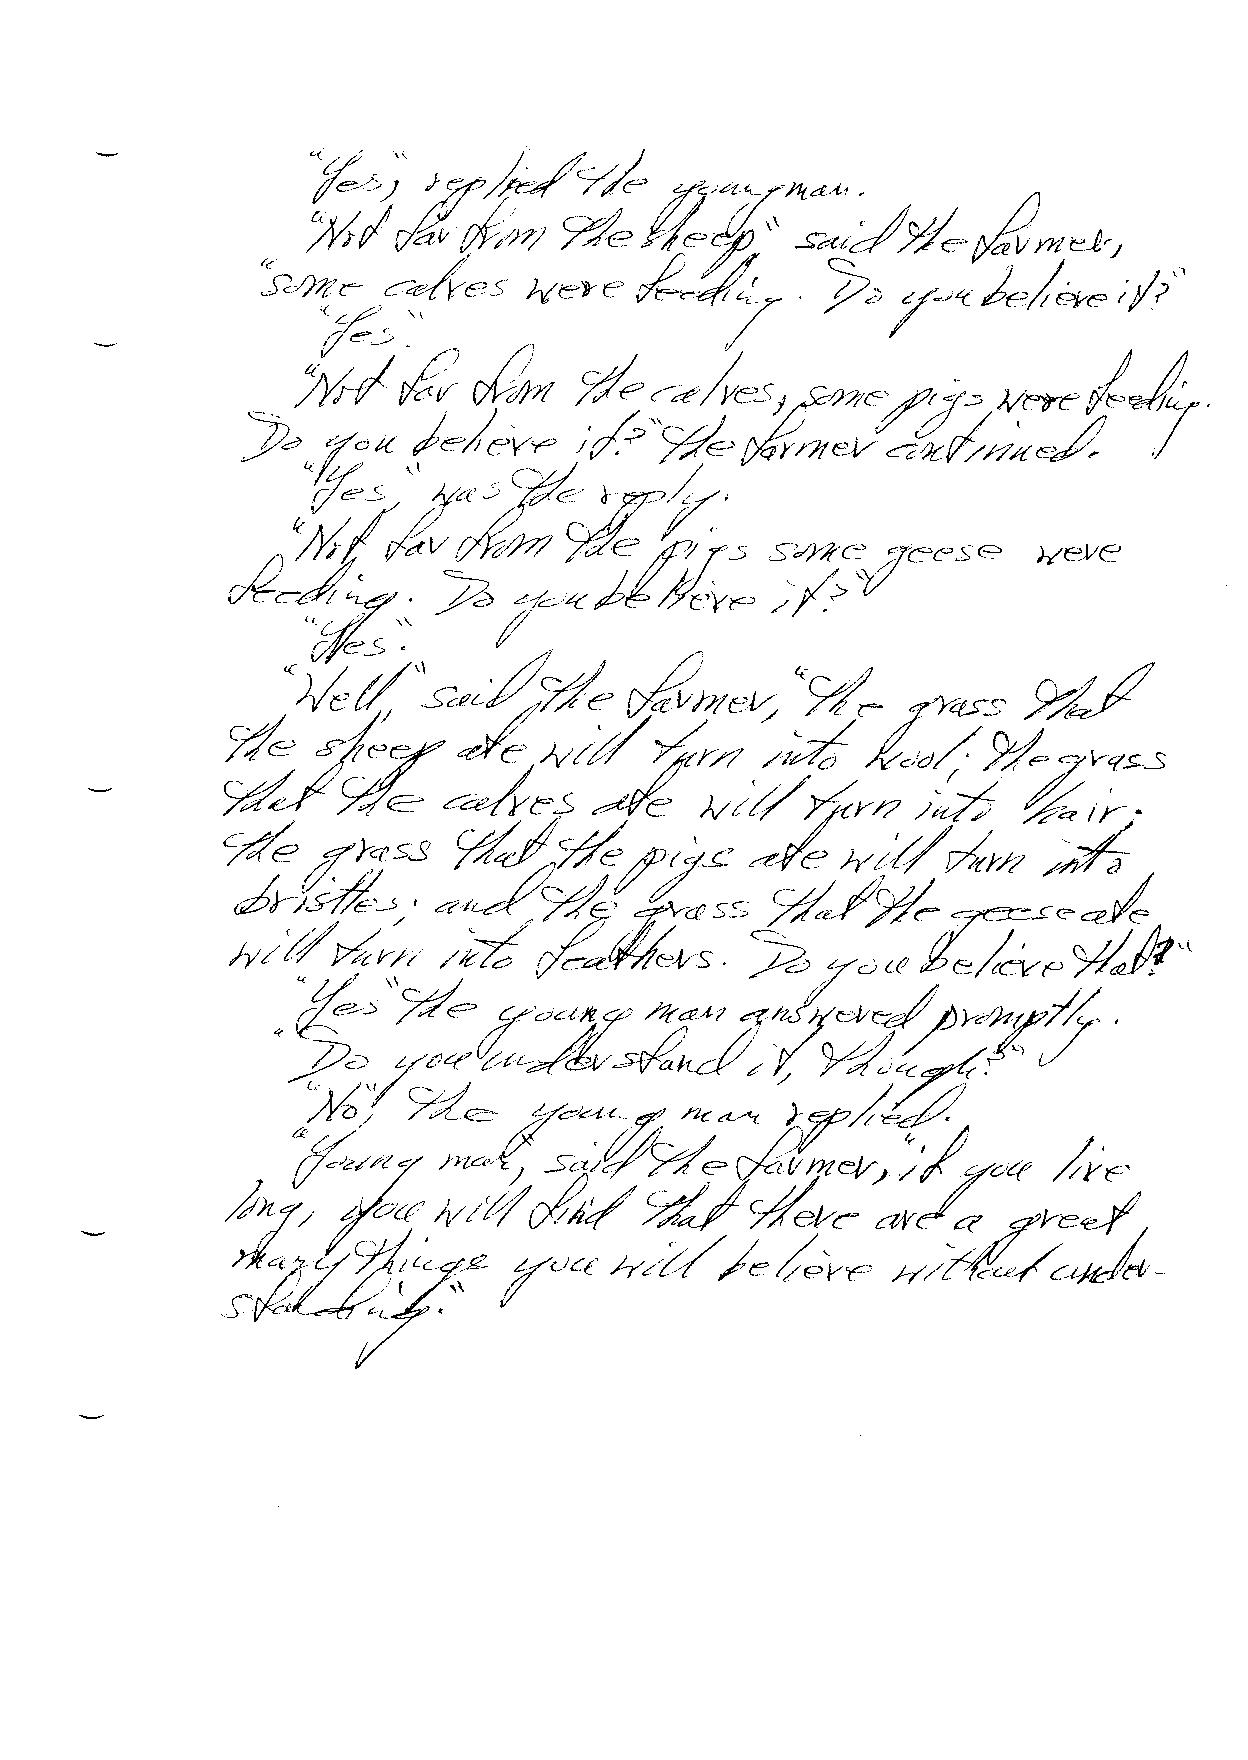 "Yes", replied the young man.
"Not far from the sheep" said the farmer,
"some calves were feeding. Do you believe it?"
"Yes".
"Not far from the calves, some pigs were feeding.
Do you believe it?" the farmer continued.
"Yes," was the reply.
"Not far from the pigs some geese were
feeding. Do you believe it?"
"Yes".
"Well," said the farmer, "the grass that
the sheep ate will turn into wool; the grass
that the calves ate will turn into hair;
the grass that the pigs ate will turn into
bristles; and the grass that the geese ate
will turn into feathers. Do you believe that?"
"Yes" the young man answered promptly.
"Do you understand it, though?"
"No", the young man replied.
"Young man", said the farmer, "if you live
long, you will find that there are a great
many things you will believe without under-
standing."